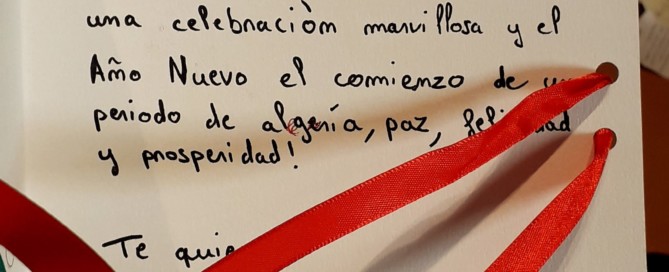 una celebración marvillosa y el
Año Nuevo el comienzo de
periodo de algería, paz,
y prosperidad!
Te